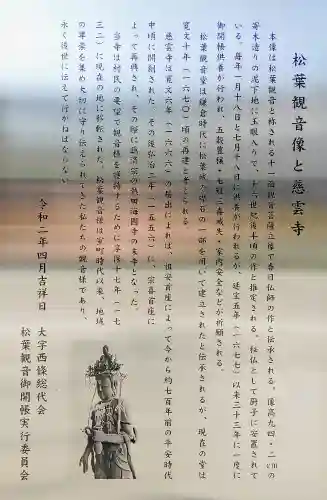 松葉観音像と慈雲寺
本像は松葉観音と称される十一面観音菩薩立像で春日仏師の作と伝承される。像高九四・二cmの
寄木造りの泥下地に玉眼入りで、十六世紀後半頃の作と推定される。秘仏として厨子に安置されて
いる。毎年一月十八日と七月十八日に供養が行われるが、延宝五年(一六七七)以来三十三年に一度に
御開帳供養が行われ、五穀豊穣・七難三毒滅失・家内安全などが祈願される。
松葉観音堂は鎌倉時代に松葉城の礎石の一部を用いて建立されたと伝承されるが、現在の堂は
寛文十年(一六七〇)頃の再建と考えられる。
慈雲寺は寛文六年(一六六六)の輪出によれば、祖安首座によって今から約七百年前の平安時代
中頃に開創された。その後弘治二年(一五五六)に、宗喜首座に
よって再興され、その際に臨済宗の熱田海国寺の末寺となった。
当寺は村民の要望で観音様を護持するために享保十七年(一七
三二)に現在の地に移転された。松葉観音様は室町時代以来、地域
の尊崇を集め大切に守り伝えられてきた私たちの観音様であり、
永く後世に伝えて行かねばならない。
令和二年四月吉祥日
大字西條総代会
松葉観音御開帳実行委員会